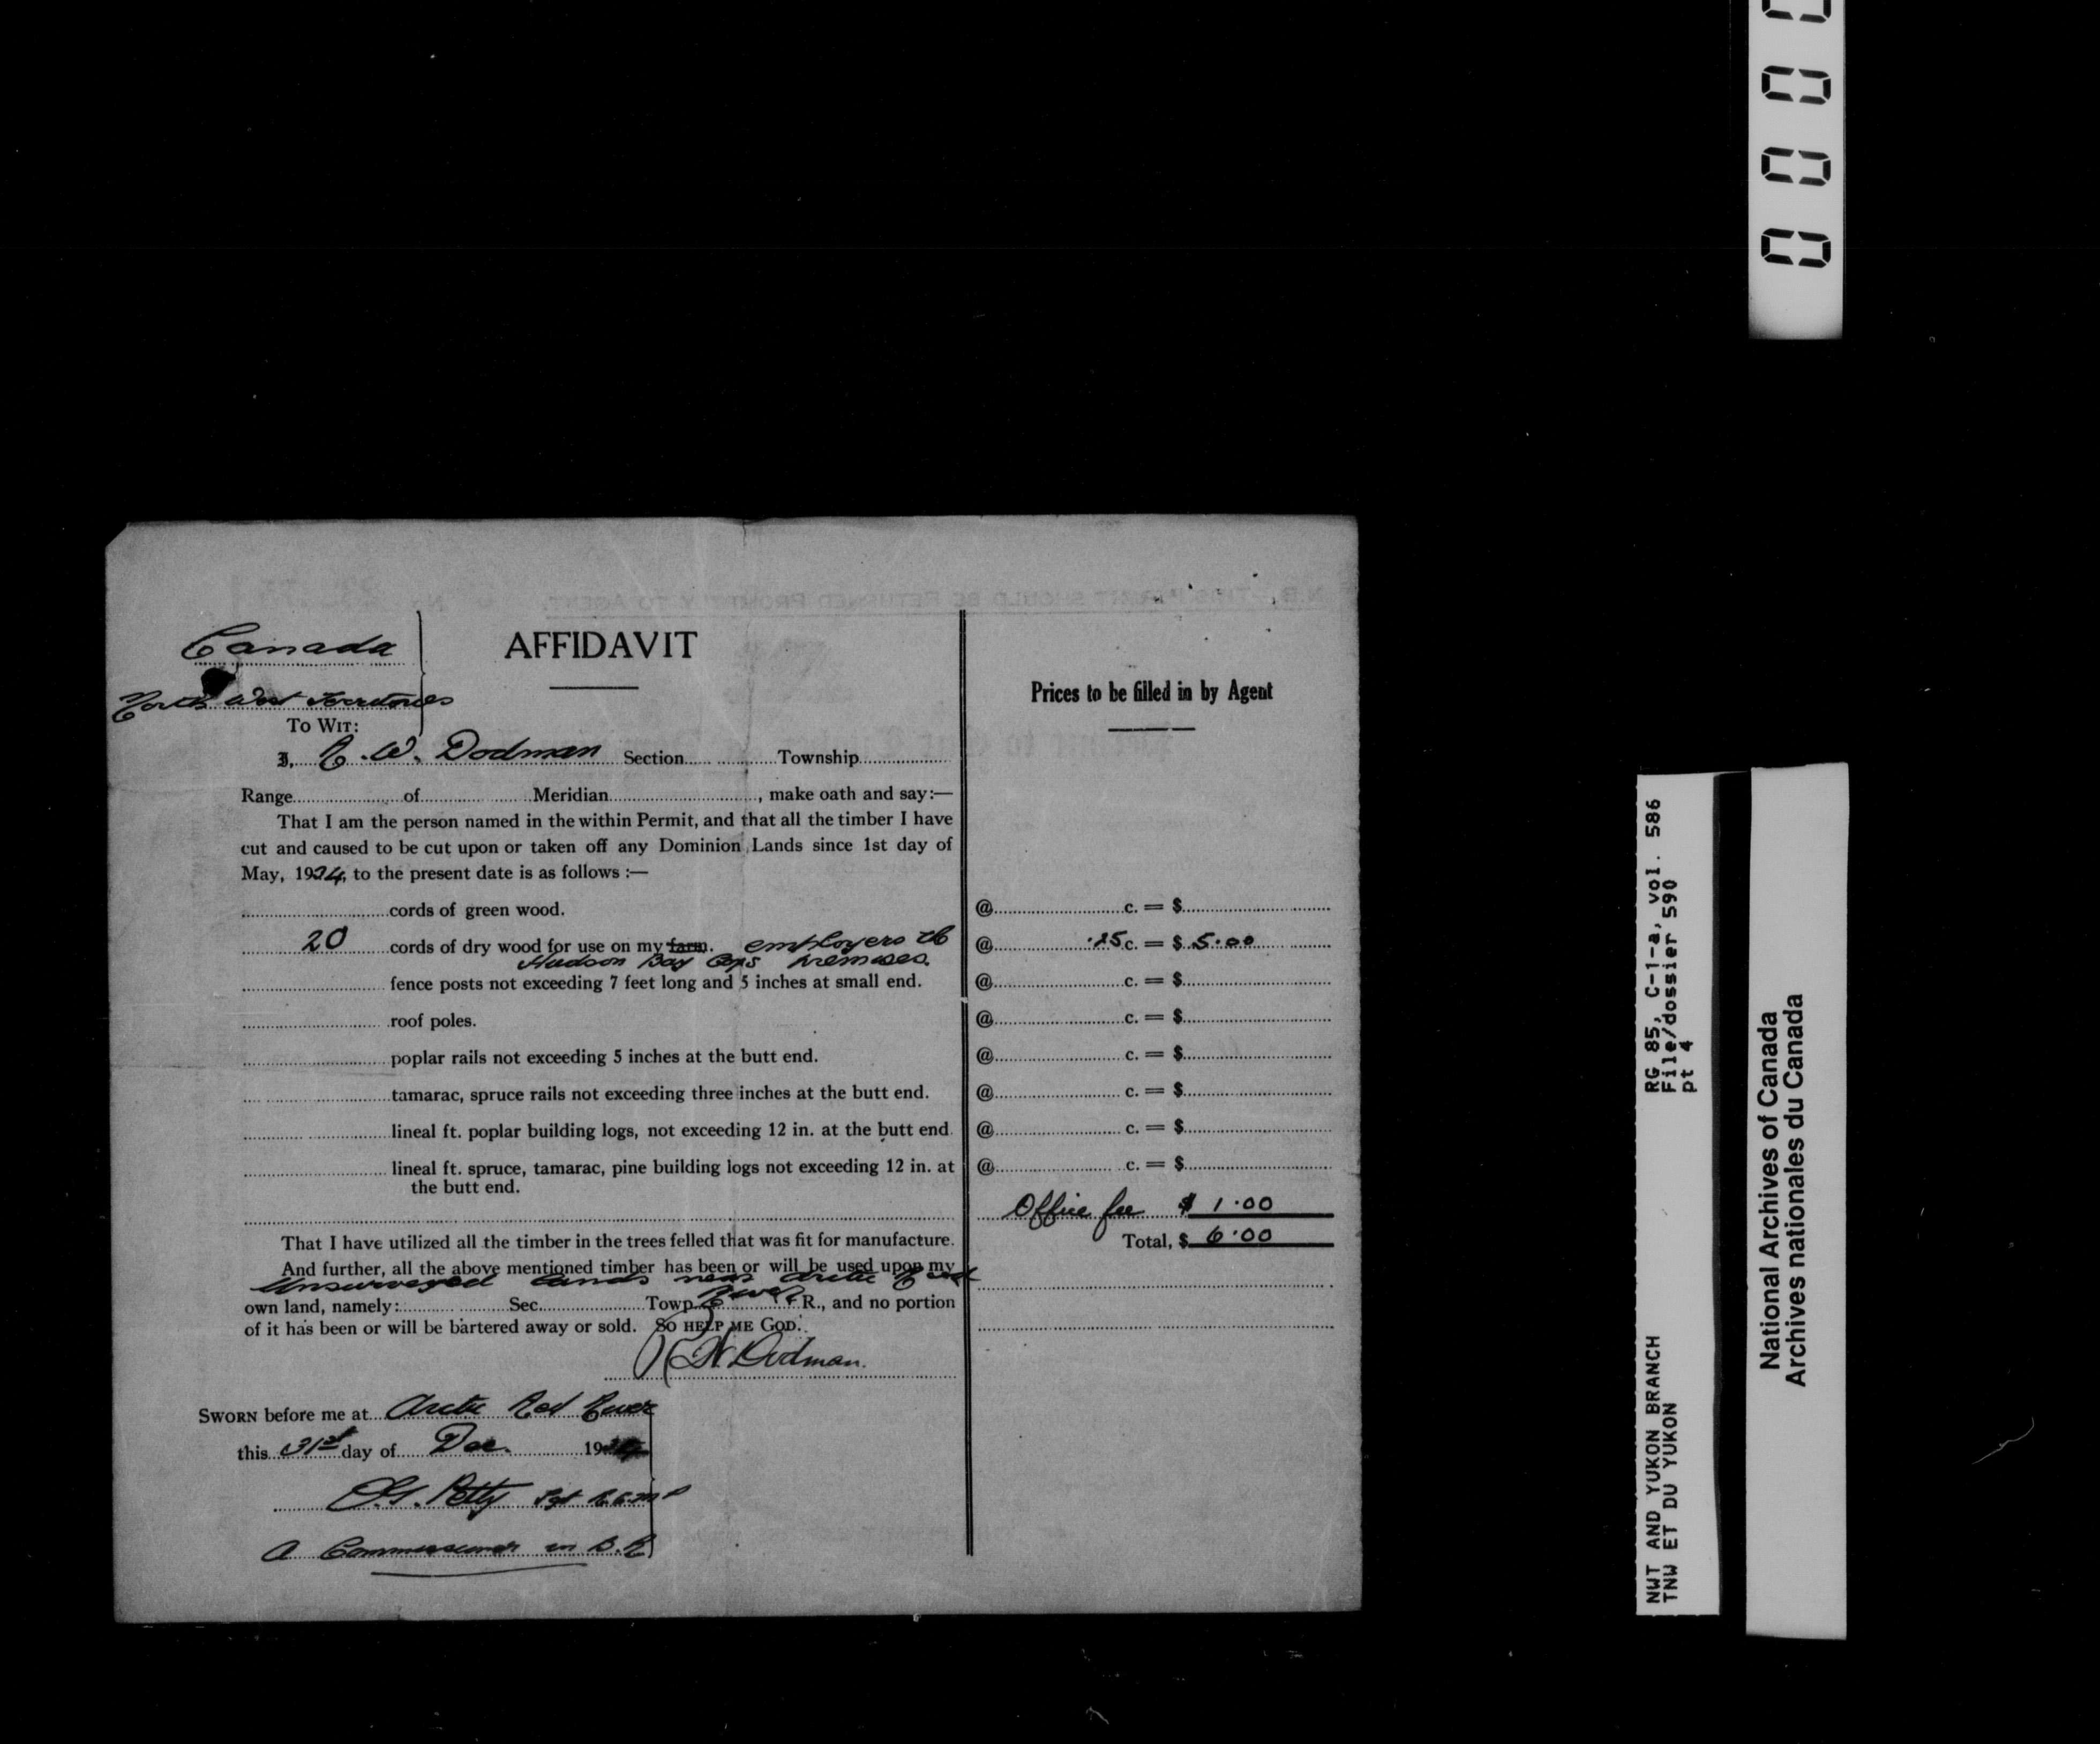 Canada
AFFIDAVIT
North West Territories
To Wit:
I, C. W. Dodman Section Township
Range of Meridian , make oath and say:—
That I am the person named in the within Permit, and that all the timber I have
cut and caused to be cut upon or taken off any Dominion Lands since 1st day of
May, 1924, to the present date is as follows :—
cords of green wood.
20 cords of dry wood for use on my farm. employers the
Hudson Bay Coys premises.
fence posts not exceeding 7 feet long and 5 inches at small end.
roof poles.
poplar rails not exceeding 5 inches at the butt end.
tamarac, spruce rails not exceeding three inches at the butt end.
lineal ft. poplar building logs, not exceeding 12 in. at the butt end
lineal ft. spruce, tamarac, pine building logs not exceeding 12 in. at
the butt end.
That I have utilized all the timber in the trees felled that was fit for manufacture.
And further, all the above mentioned timber has been or will be used upon my
Unsurveyed lands near Arctic Red
River
own land, namely: Sec. Towp. R., and no portion
of it has been or will be bartered away or sold. So help me God.
W. Dodman.
Sworn before me at Arctic Red River
this 31st day of Dec. 19
Petty Sgt R.C.M.P
A Commissioner in B.R.
Prices to be filled in by Agent
@ c. = $
@ .25 c. = $ 5.00
@ c. = $
@ c. = $
@ c. = $
@ c. = $
@ c. = $
@ c. = $
Office fee $ 1.00
Total, $ 6.00
N.B.—THIS PERMIT SHOULD BE RETURNED PROMPTLY TO AGENT.
0 0 0
RG 85, C-1-a, vol. 586
File/dossier 590
pt 4
NWT AND YUKON BRANCH
TNW ET DU YUKON
National Archives of Canada
Archives nationales du Canada